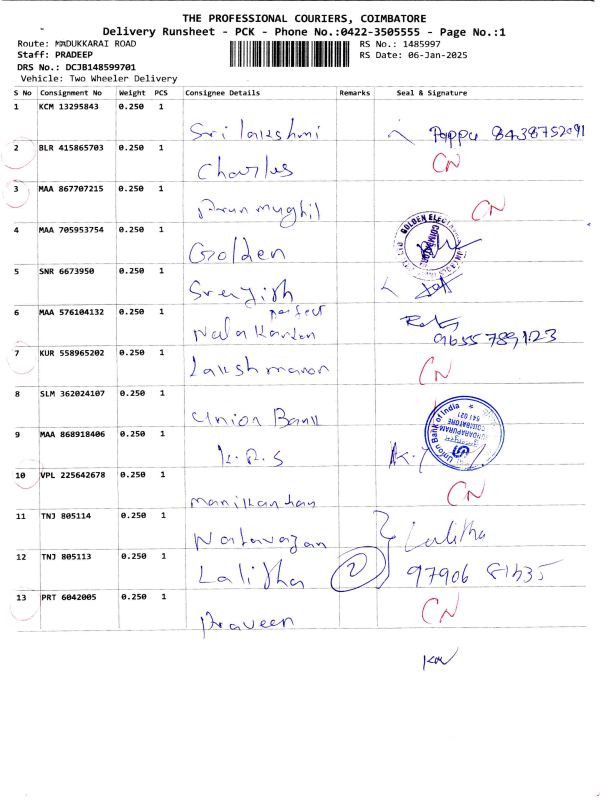 THE PROFESSIONAL COURIERS, COIMBATORE
Delivery Runsheet - PCK - Phone No.:0422-3505555 - Page No.:1
Route: MADUKKARAI ROAD
RS No.: 1485997
Staff: PRADEEP
RS Date: 06-Jan-2025
DRS No.: DCJB148599701
Vehicle: Two Wheeler Delivery
S No Consignment No Weight PCS Consignee Details Remarks Seal & Signature
1 KCM 13295843 0.250 1
Sri lakshmi Pappu 8438752091
2 BLR 415865703 0.250 1
Charles CN
3 MAA 867707215 0.250 1
Arun mughil CN
4 MAA 705953754 0.250 1
Golden
GOLDEN COIMBATORE
5 SNR 6673950 0.250 1
Srenjish
6 MAA 576104132 0.250 1
perfect
9655789123
7 KUR 558965202 0.250 1
Lakshmanan CN
8 SLM 362024107 0.250 1
Union Bank
Union Bank of India
SUNDARAPURAM
COIMBATORE
641 021
9 MAA 868918406 0.250 1
K.R.S
10 VPL 225642678 0.250 1
manikantan CN
11 TNJ 805114 0.250 1
Natarajan Lalitha
12 TNJ 805113 0.250 1
Lalitha 2 97906 81535
13 PRT 6042005 0.250 1
Praveen CN